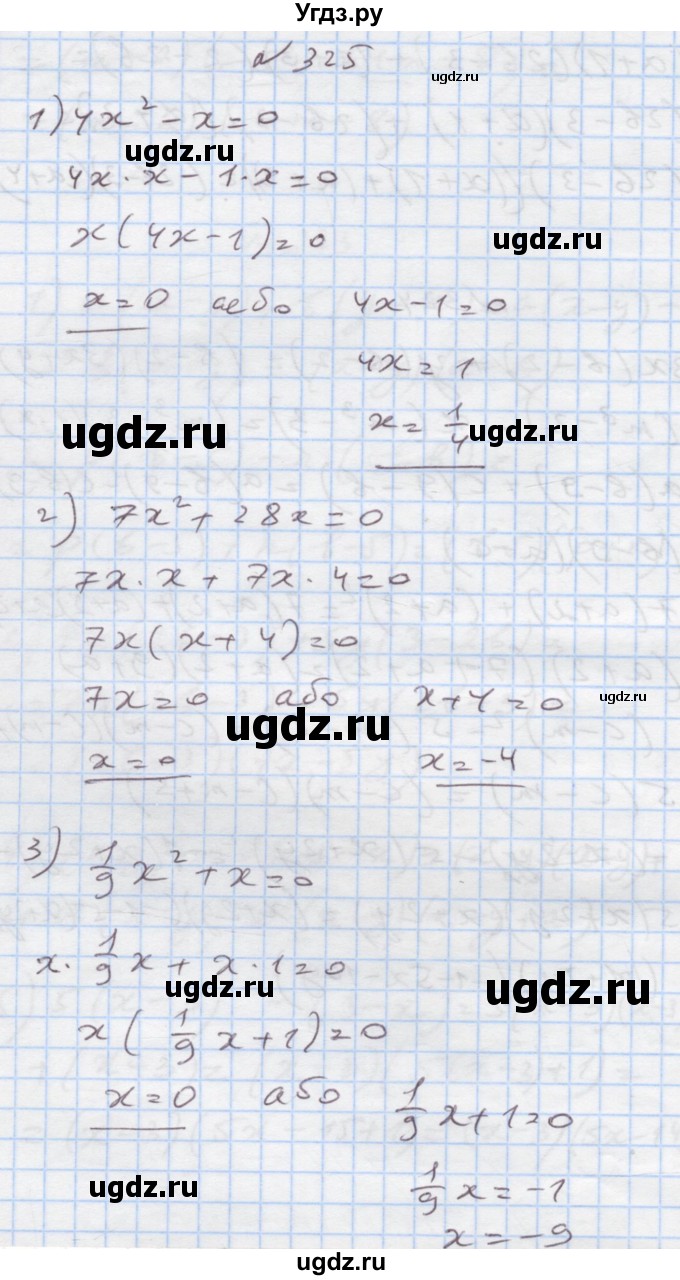 Угдз.ру
№ 325
ugdz.ru
1) 4x² - x = 0
ugdz.ru
4x · x - 1 · x = 0
x(4x - 1) = 0
ugdz.ru
x = 0 або 4x - 1 = 0
4x = 1
x = 1/4
ugdz.ru
ugdz.ru
2) 7x² + 28x = 0
7x · x + 7x · 4 = 0
7x(x + 4) = 0
7x = 0 або x + 4 = 0
ugdz.ru
ugdz.ru
x = 0 x = -4
3) 1/9 x² + x = 0
x · 1/9 x + x · 1 = 0
ugdz.ru
ugdz.ru
x(1/9 x + 1) = 0
x = 0 або 1/9 x + 1 = 0
ugdz.ru
1/9 x = -1
x = -9
ugdz.ru